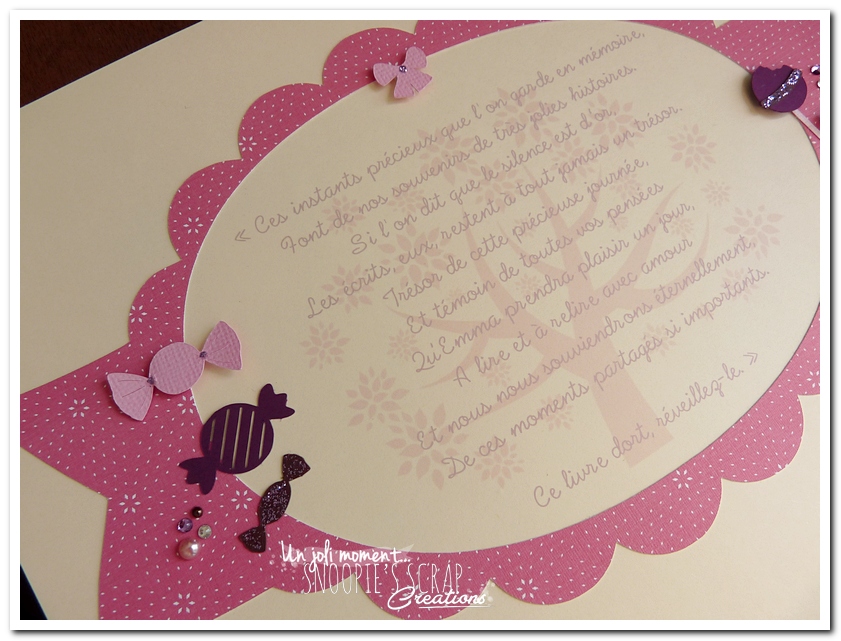 « Ces instants précieux que l'on garde en mémoire,
Font de nos souvenirs de très jolies histoires.
Si l'on dit que le silence est d'or,
Les écrits, eux, restent à tout jamais un trésor.
Trésor de cette précieuse journée,
Et témoin de toutes vos pensées
Qu'Emma prendra plaisir un jour,
A lire et à relire avec amour
Et nous nous souviendrons éternellement,
De ces moments partagés si importants.
Ce livre dort, réveillez-le. »
Un joli moment...
SNOOPIE'S SCRAP
Creations